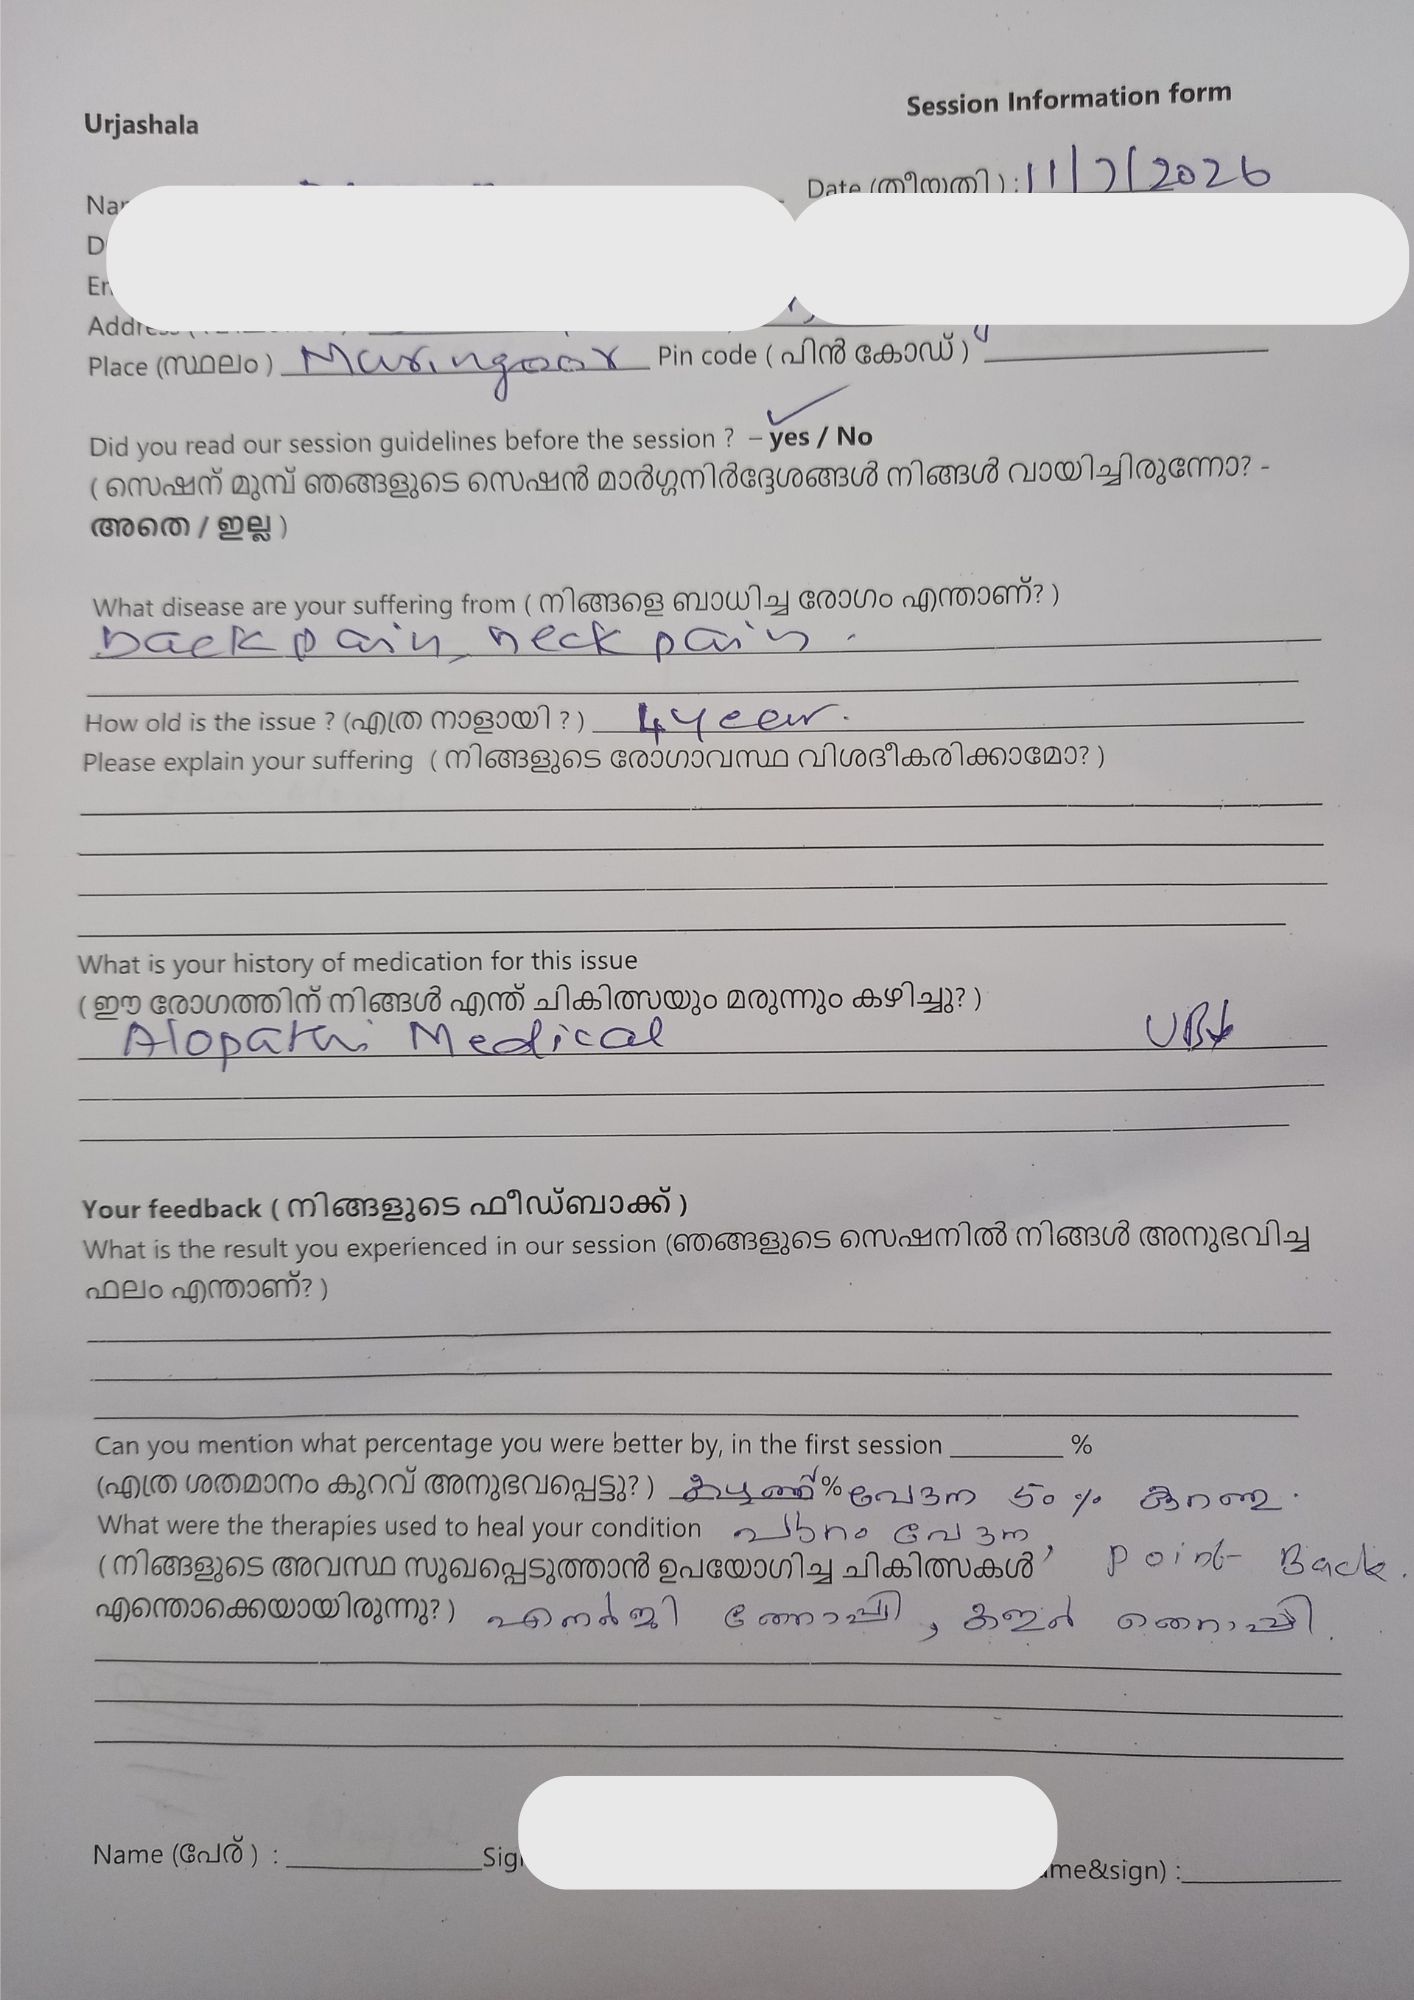 Urjashala
Session Information form
Date (തീയതി) : 11/7/2026
Place (സ്ഥലം) Muringoor Pin code ( പിൻ കോഡ്)
Did you read our session guidelines before the session ? – yes / No
( സെഷന് മുമ്പ് ഞങ്ങളുടെ സെഷൻ മാർഗ്ഗനിർദ്ദേശങ്ങൾ നിങ്ങൾ വായിച്ചിരുന്നോ? -
അതെ / ഇല്ല )
What disease are your suffering from ( നിങ്ങളെ ബാധിച്ച രോഗം എന്താണ്? )
back pain, neck pain.
How old is the issue ? (എത്ര നാളായി ? ) 4 year.
Please explain your suffering ( നിങ്ങളുടെ രോഗാവസ്ഥ വിശദീകരിക്കാമോ? )
What is your history of medication for this issue
( ഈ രോഗത്തിന് നിങ്ങൾ എന്ത് ചികിത്സയും മരുന്നും കഴിച്ചു? )
Alopathi Medical
Your feedback ( നിങ്ങളുടെ ഫീഡ്ബാക്ക് )
What is the result you experienced in our session (ഞങ്ങളുടെ സെഷനിൽ നിങ്ങൾ അനുഭവിച്ച
ഫലം എന്താണ്? )
Can you mention what percentage you were better by, in the first session %
(എത്ര ശതമാനം കുറവ് അനുഭവപ്പെട്ടു? ) % വേദന 50 % കുറഞ്ഞു.
What were the therapies used to heal your condition പുറം വേദന,
( നിങ്ങളുടെ അവസ്ഥ സുഖപ്പെടുത്താൻ ഉപയോഗിച്ച ചികിത്സകൾ point Back.
എന്തൊക്കെയായിരുന്നു? ) എനർജി
Name (പേര് ) :